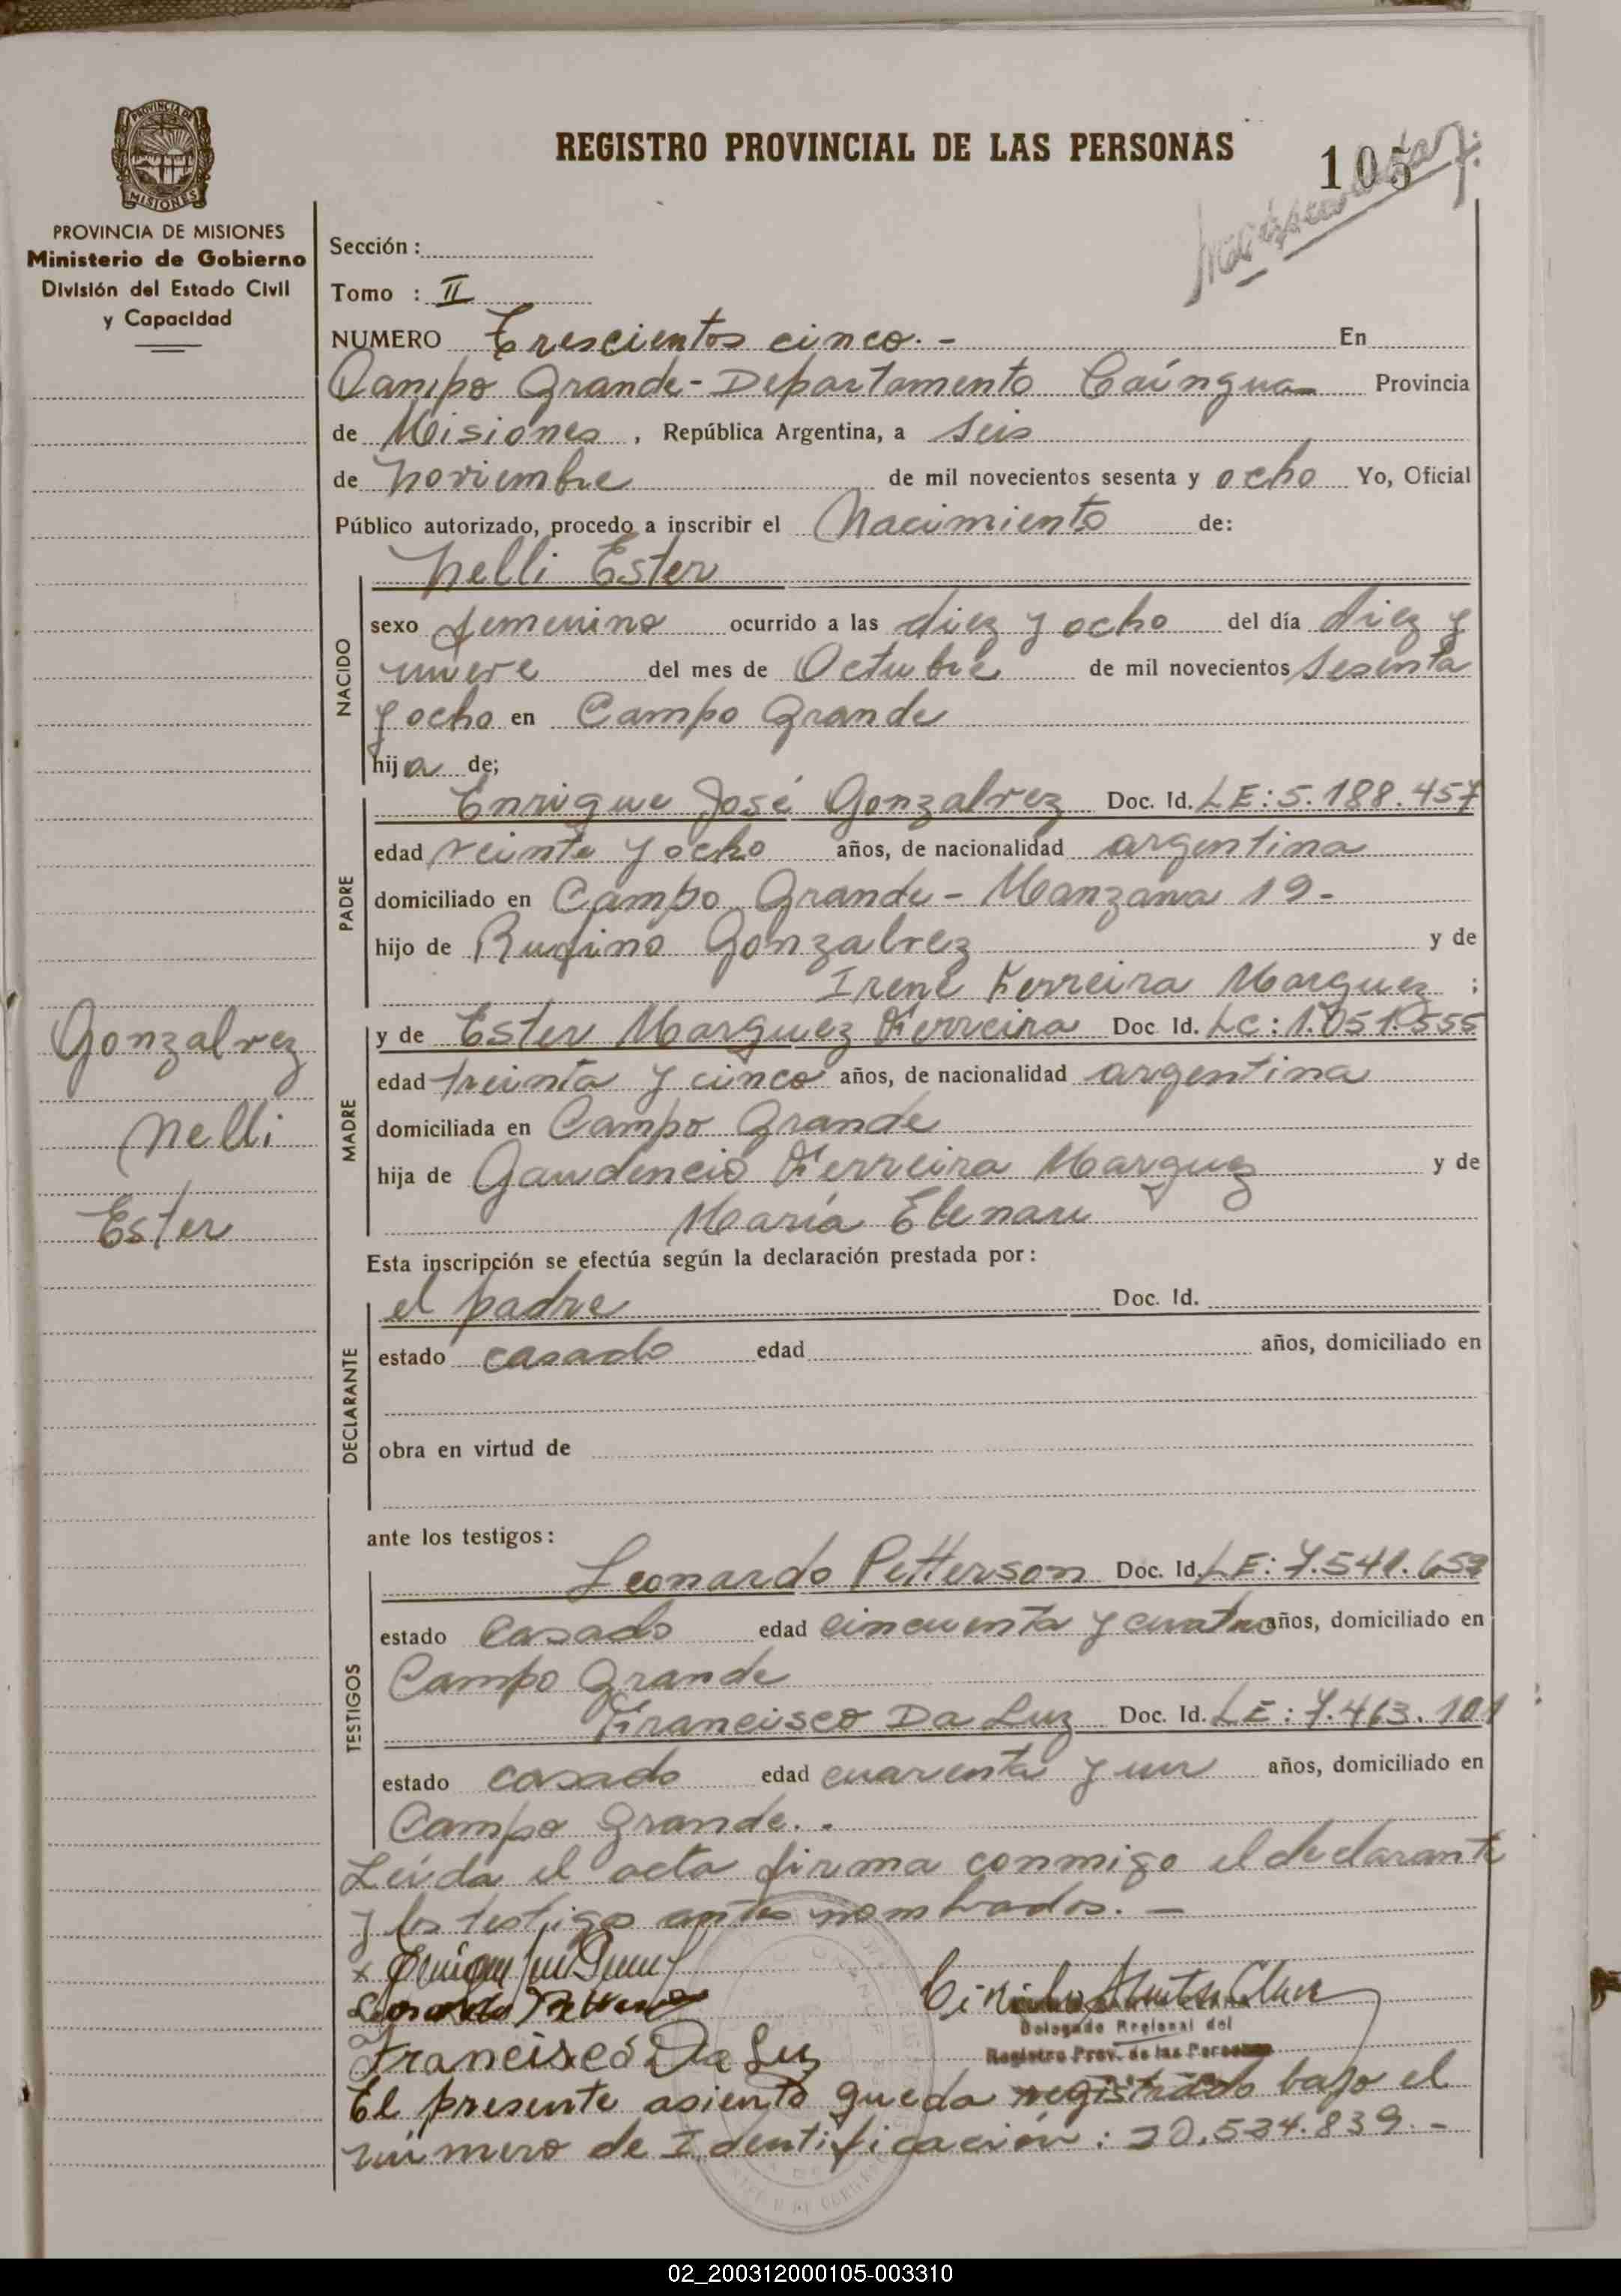 PROVINCIA DE
MISIONES
PROVINCIA DE MISIONES
Ministerio de Gobierno
División del Estado Civil
y Capacidad
REGISTRO PROVINCIAL DE LAS PERSONAS
105
Sección :
Tomo : II
NUMERO Trescientos cinco. - En
Campo Grande - Departamento Caínguas Provincia
de Misiones , República Argentina, a seis
de noviembre de mil novecientos sesenta y ocho Yo, Oficial
Público autorizado, procedo a inscribir el Nacimiento de:
Nelli Ester
NACIDO
sexo femenino ocurrido a las diez y ocho del día diez y
nueve del mes de Octubre de mil novecientos sesenta
y ocho en Campo Grande
hija de;
PADRE
Enrique José Gonzalvez Doc. Id. LE: 5.188.457
edad veinte y ocho años, de nacionalidad argentina
domiciliado en Campo Grande - Manzana 19 -
hijo de Rufino Gonzalvez y de
Irene Ferreira Marquez ;
MADRE
y de Ester Marquez Ferreira Doc. Id. LC: 1.051.555
edad treinta y cinco años, de nacionalidad argentina
domiciliada en Campo Grande
hija de Gaudencio Ferreira Marquez y de
María Elenari
Gonzalvez
Nelli
Ester
Esta inscripción se efectúa según la declaración prestada por :
DECLARANTE
el padre Doc. Id.
estado casado edad años, domiciliado en
obra en virtud de
ante los testigos :
TESTIGOS
Leonardo Petterson Doc. Id. LE: 7.541.659
estado casado edad cincuenta y cuatro años, domiciliado en
Campo Grande
Francisco Da Luz Doc. Id. LE: 7.463.101
estado casado edad cuarenta y un años, domiciliado en
Campo Grande. .
Leída el acta firma conmigo el declarante
y los testigos antes nombrados. -
Francisco Da Luz
Delegado Regional del
Registro Prov. de las Personas
El presente asiento queda registrado bajo el
número de Identificación : 20.534.839. -
02_200312000105-003310